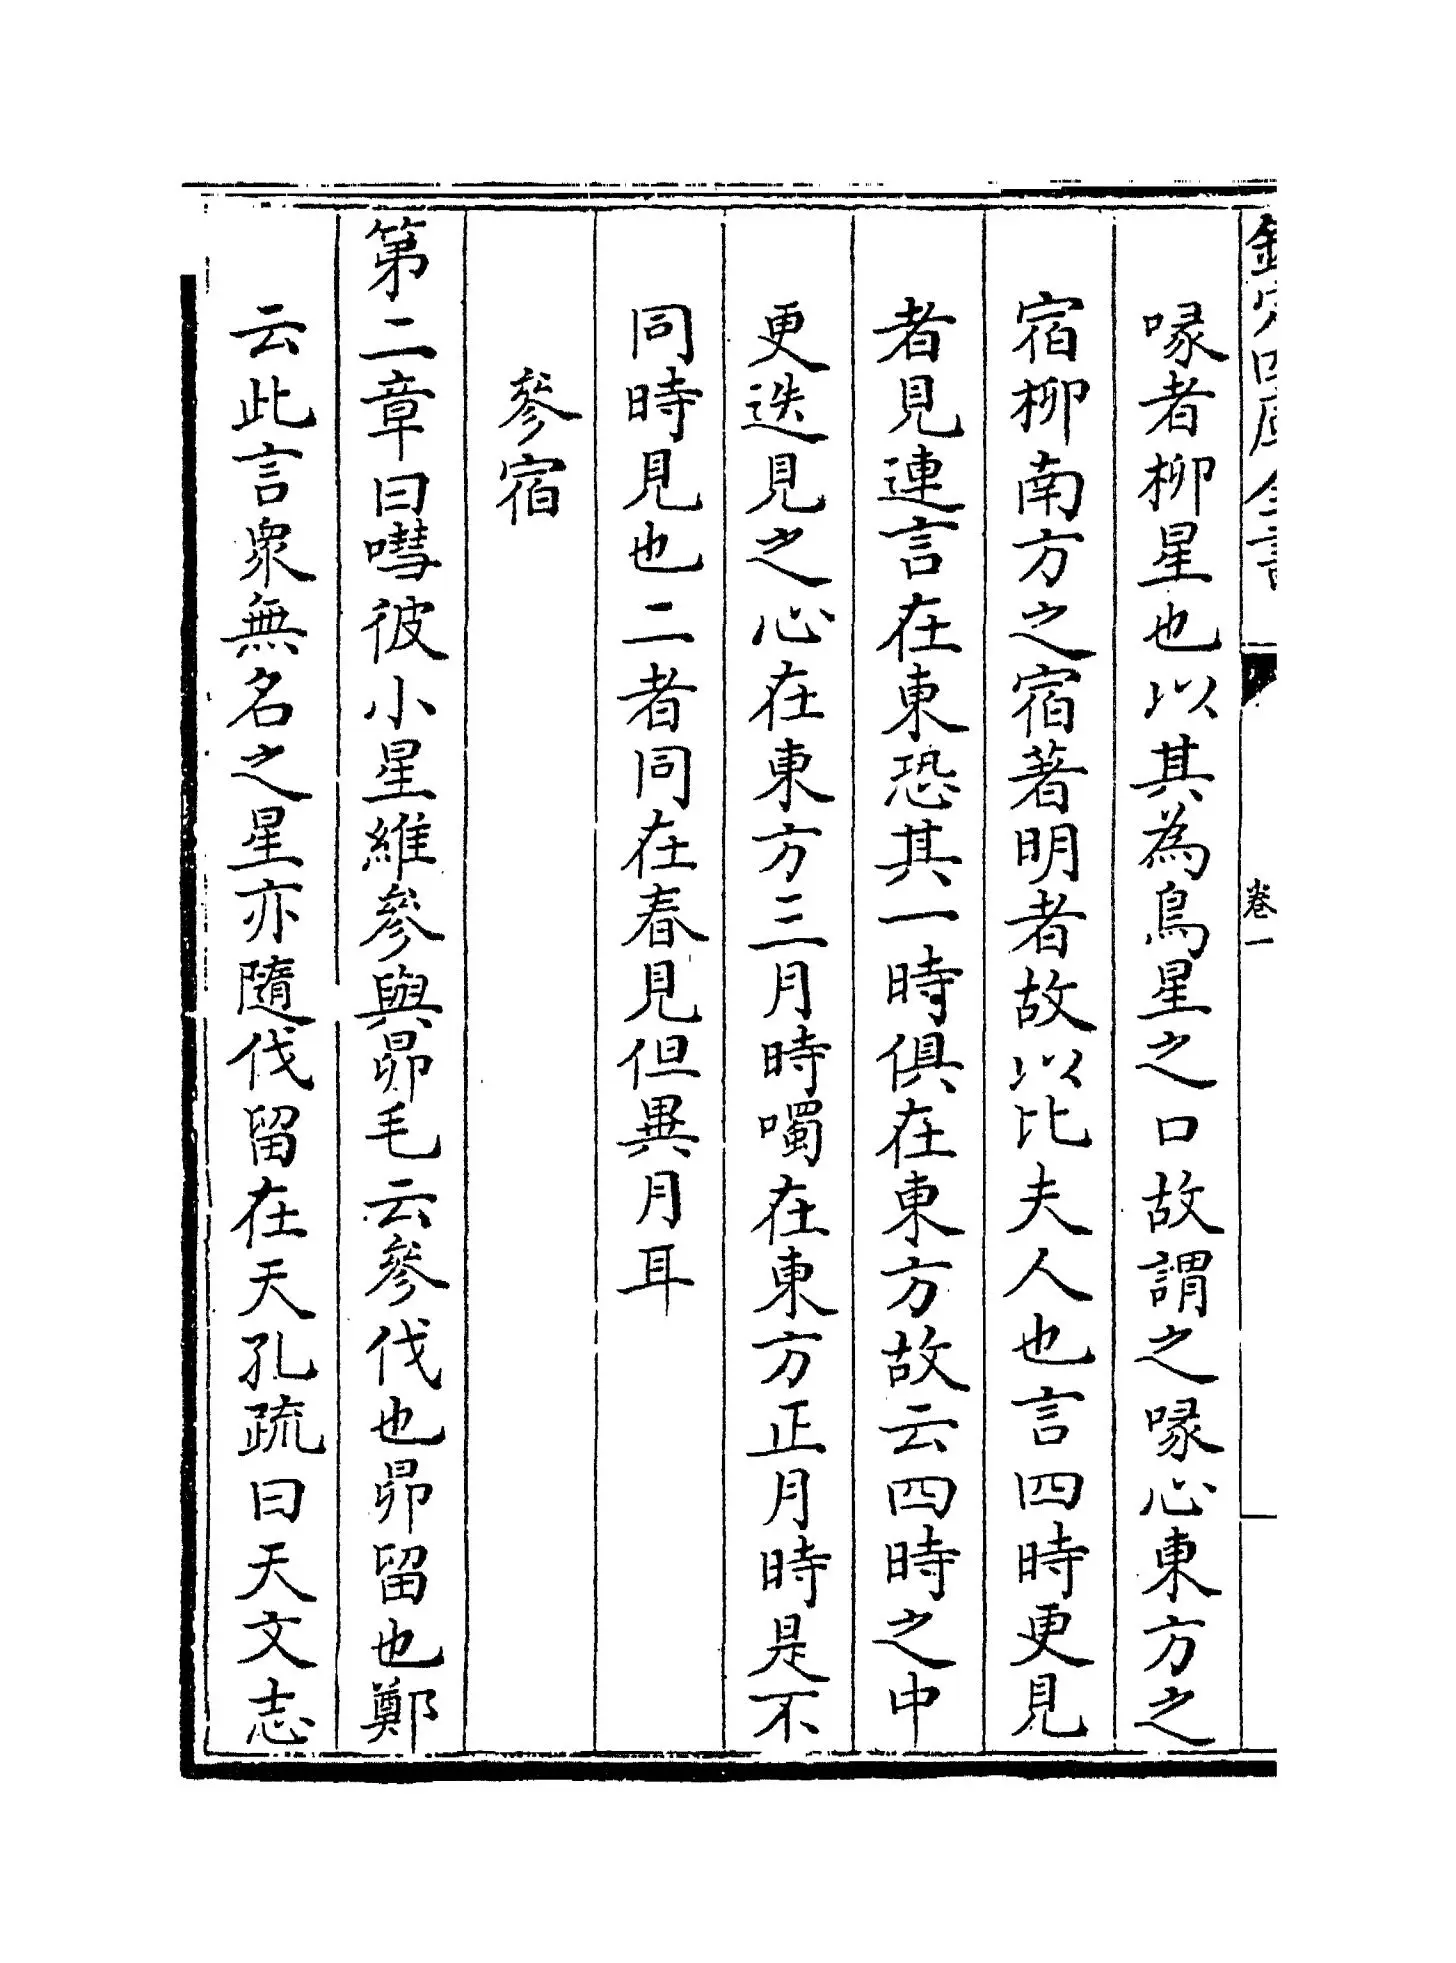 欽定四庫全書
卷一
喙者柳星也以其為鳥星之口故謂之喙心東方之
宿柳南方之宿著明者故以比夫人也言四時更見
者見連言在東恐其一時俱在東方故云四時之中
更迭見之心在東方三月時噣在東方正月時是不
同時見也二者同在春見但異月耳
參宿
第二章曰嘒彼小星維參與昴毛云參伐也昴留也鄭
云此言衆無名之星亦隨伐留在天孔疏曰天文志